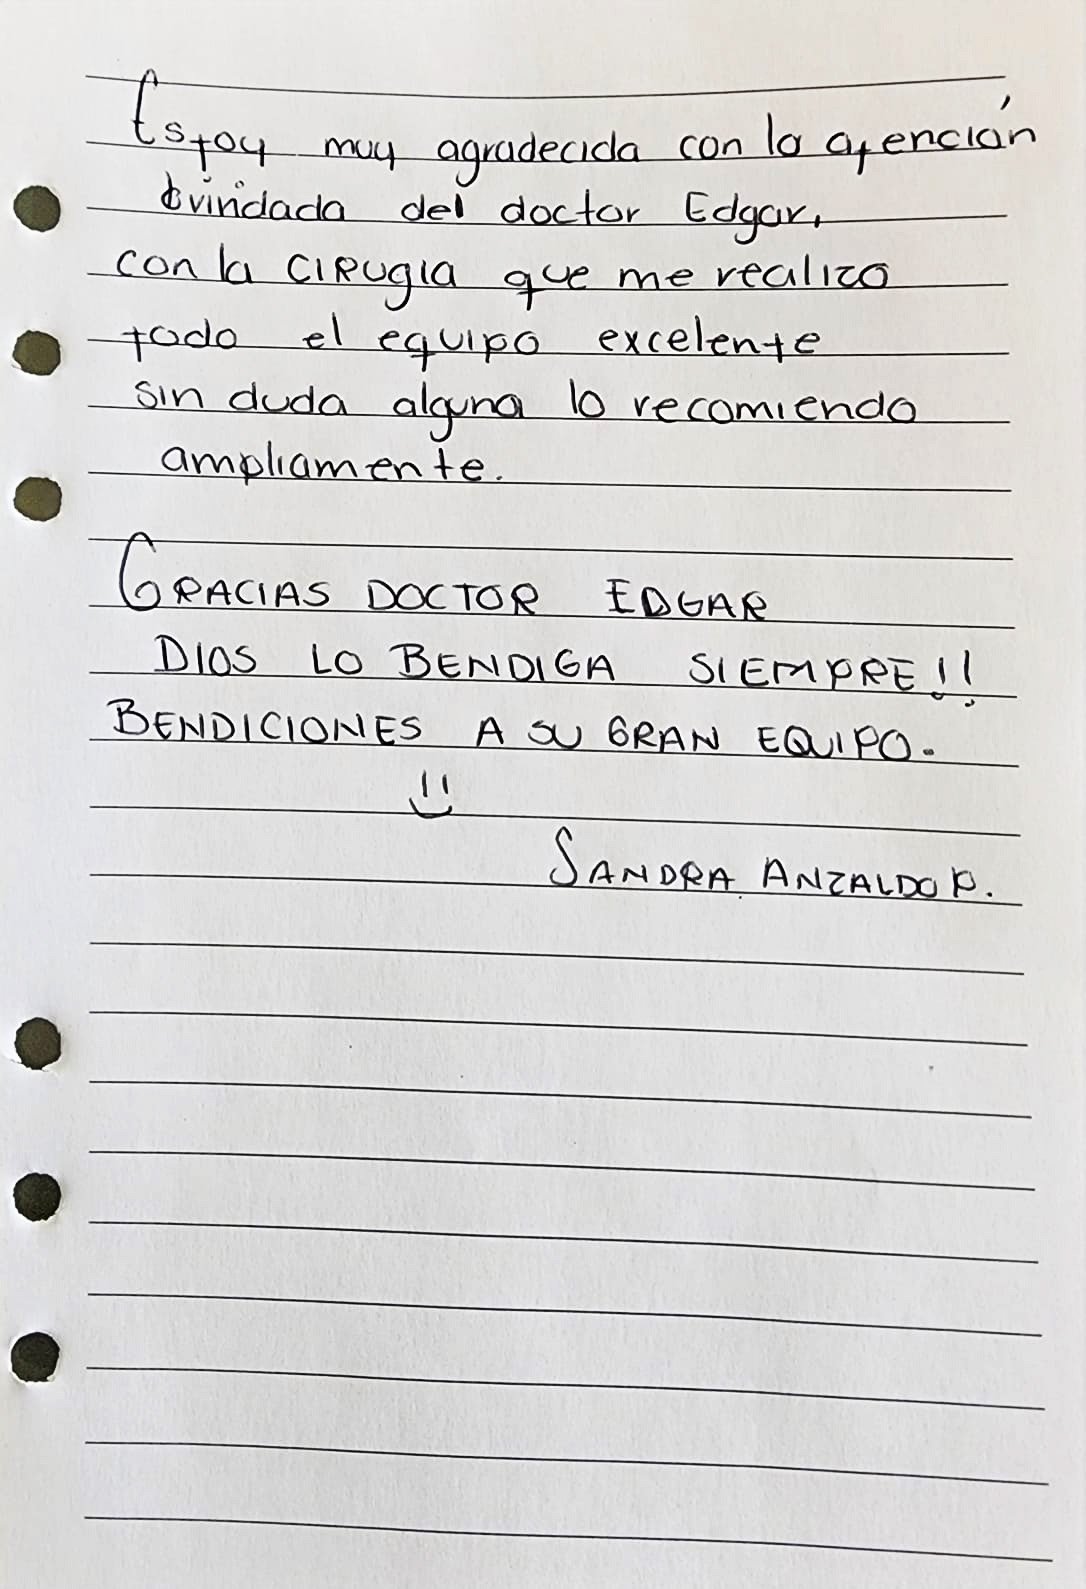 Estoy muy agradecida con la atención
brindada del doctor Edgar,
con la CIRUGIA que me realizo
todo el equipo excelente
sin duda alguna lo recomiendo
ampliamente.
GRACIAS DOCTOR EDGAR
DIOS LO BENDIGA SIEMPRE!!
BENDICIONES A SU GRAN EQUIPO.
SANDRA ANZALDO R.